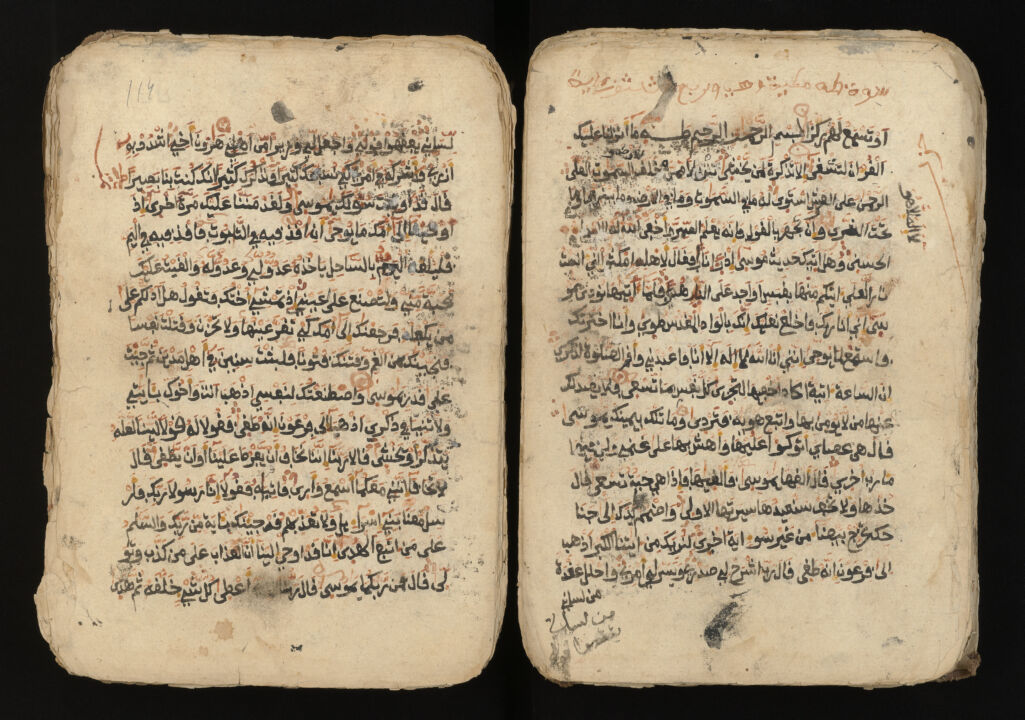 سورة طه مكية وهي
او تسمع لهم ركزا بسم الله الرحمن الرحيم طه ما انزلنا عليك
القران لتشقى الا تذكرة لمن يخشى تنزيلا ممن خلق الارض والسموت العلى
الرحمن على العرش استوى له ما في السموت وما في الارض وما بينهما وما
تحت الثرى وان تجهر بالقول فانه يعلم السر واخفى الله لا اله الا هو
الحسنى وهل اتيك حديث موسى اذ را نارا فقال لاهله امكثوا اني انست
نارا لعلي اتيكم منها بقبس او اجد على النار هدى فلما اتيها نودي يمو
سى اني انا ربك فاخلع نعليك انك بالواد المقدس طوى وانا اخترتك
فاستمع لما يوحى انني انا الله لا اله الا انا فاعبدني واقم الصلوة لذكري
ان الساعة اتية اكاد اخفيها لتجزى كل نفس بما تسعى فلا يصدنك
عنها من لا يومن بها واتبع هويه فتردى وما تلك بيمينك يموسى
قال هي عصاي اتوكوا عليها واهش بها على غنمي ولي فيها
مارب اخرى قال القها يموسى فالقيها فاذا هي حية تسعى قال
خذها ولا تخف سنعيدها سيرتها الاولى واضمم يدك الى جنا
حك تخرج بيضا من غير سو اية اخرى لنريك من ايتنا الكبرى اذهب
الى فرعون انه طغى قال رب اشرح لي صدري ويسر لي امري واحلل عقدة
من لساني
من لساني
يفقهوا
لساني يفقهوا قولي واجعل لي وزيرا من اهلي هرون اخي اشدد به
ازري واشركه في امري كي نسبحك كثيرا ونذكرك كثيرا انك كنت بنا بصيرا
قال قد اوتيت سولك يموسى ولقد مننا عليك مرة اخرى اذ
اوحينا الى امك ما يوحى ان اقذفيه في التابوت فاقذفيه في اليم
فليلقه اليم بالساحل ياخذه عدو لي وعدو له والقيت عليك
محبة مني ولتصنع على عيني اذ تمشي اختك فتقول هل ادلكم على
من يكفله فرجعنك الى امك كي تقر عينها ولا تحزن وقتلت نفسا
فنجينك من الغم وفتنك فتونا فلبثت سنين في اهل مدين ثم جيت
على قدر يموسى واصطنعتك لنفسي اذهب انت واخوك بايتي
ولا تنيا في ذكري اذهبا الى فرعون انه طغى فقولا له قولا لينا لعله
يتذكر او يخشى قالا ربنا اننا نخاف ان يفرط علينا او ان يطغى قال
لا تخافا انني معكما اسمع وارى فاتيه فقولا انا رسولا ربك فار
سل معنا بني اسرايل ولا تعذبهم قد جينك باية من ربك والسلم
على من اتبع الهدى انا قد اوحي الينا ان العذاب على من كذب وتو
لى قال فمن ربكما يموسى قال ربنا الذي اعطى كل شي خلقه ثم هدى